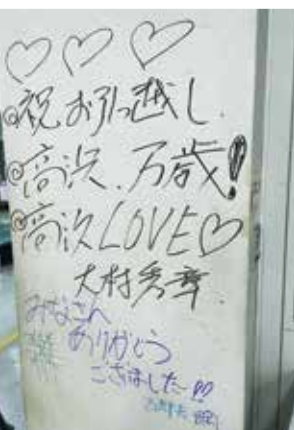 ♡♡♡
◎祝お引っ越し.
◎高浜.万歳!
◎高浜LOVE♡
大村秀章.
みなさん
ありがとう
ございました〜!!